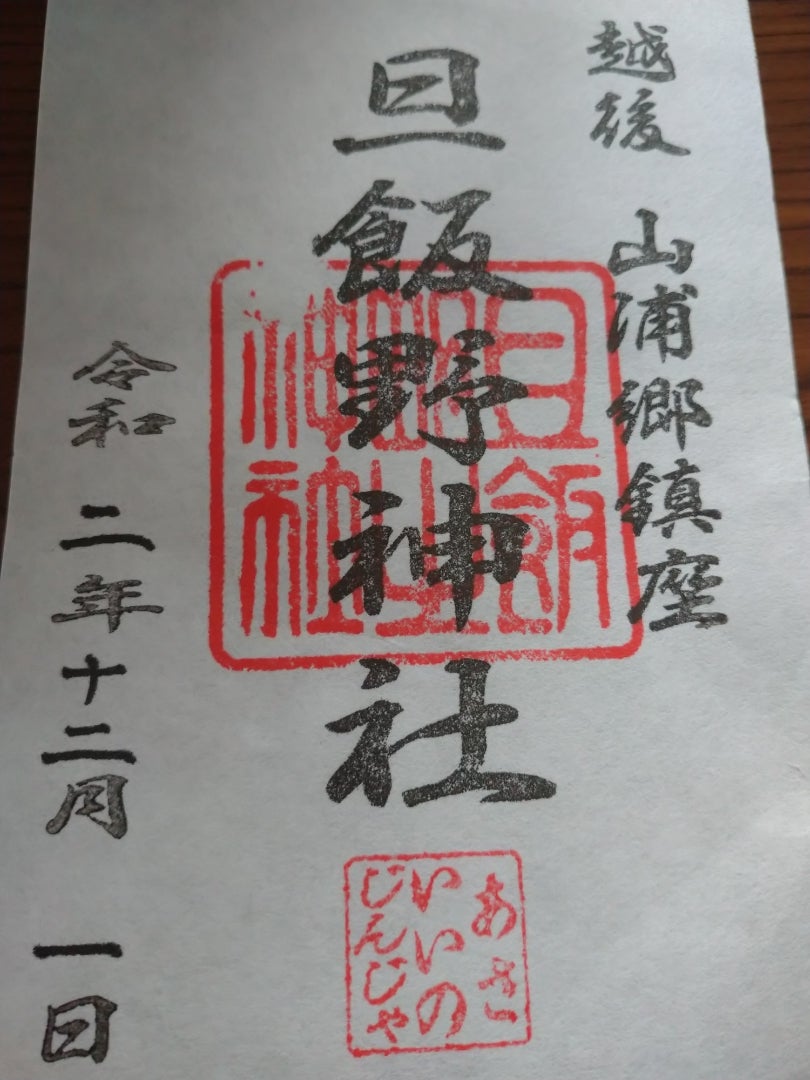 越後 山浦郷鎮座
旦飯野神社
令和二年十二月一日
旦飯
野之
神社
あさ
いいの
じんじゃ